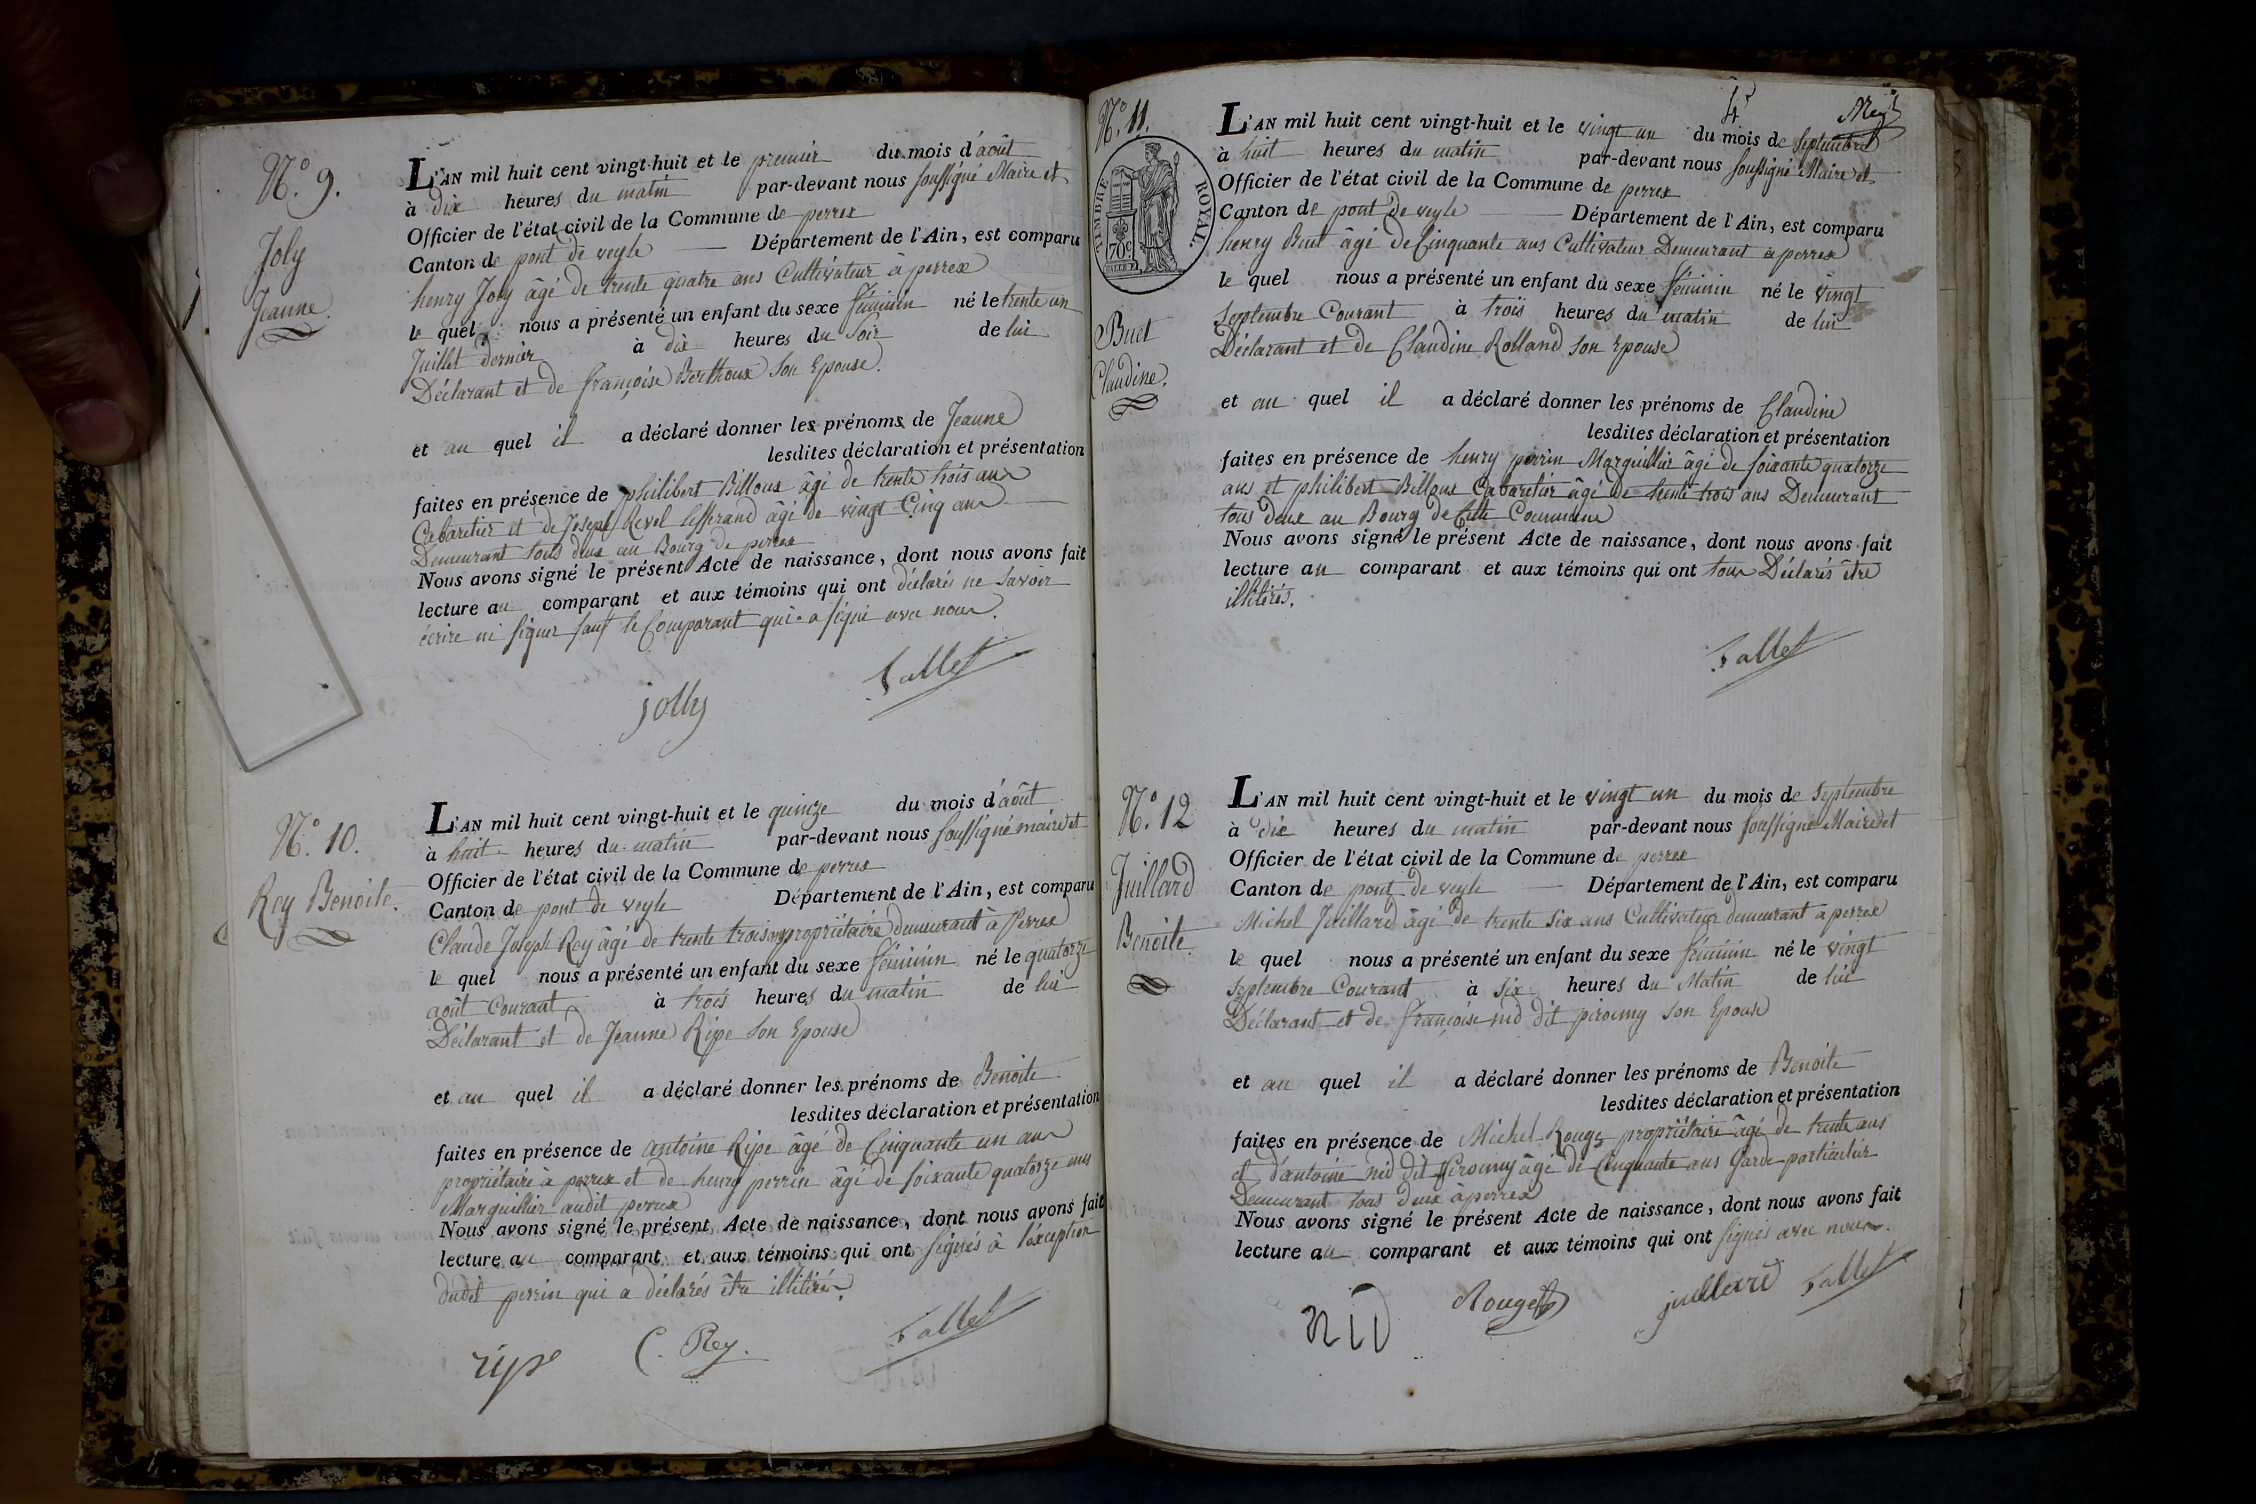 N.º 9.
Joly
Jeanne.
L'AN mil huit cent vingt-huit et le premier du mois d'août
à dix heures du matin par-devant nous soussigné Maire et
Officier de l'état civil de la Commune de perrex
Canton de pont de veyle Département de l'Ain, est comparu
henry Joly âgé de trente quatre ans Cultivateur à perrex
le quel nous a présenté un enfant du sexe féminin né le trente un
Juillet dernier à dix heures du soir de lui
Déclarant et de françoise Berthoux son Epouse.
et au quel il a déclaré donner les prénoms de Jeanne
lesdites déclaration et présentation
faites en présence de philibert Billoux âgé de trente trois ans
Cabaretier et de Joseph Revel tisserand âgé de vingt-Cinq ans
Demeurant tous deux au Bourg de perrex
Nous avons signé le présent Acte de naissance, dont nous avons fait
lecture au comparant et aux témoins qui ont déclarés ne savoir
écrire ni signer sauf le Comparant qui a signé avec nous.
jolly
N.º 10.
Rey Benoite.
L'AN mil huit cent vingt-huit et le quinze du mois d'août
à huit heures du matin par-devant nous soussigné maire et
Officier de l'état civil de la Commune de perrex
Canton de pont de veyle Département de l'Ain, est comparu
Claude Joseph Rey âgé de trente trois ans propriétaire demeurant à Perrex
le quel nous a présenté un enfant du sexe féminin né le quatorze
août Courant à trois heures du matin de lui
Déclarant et de Jeanne Ripe son Epouse
et au quel il a déclaré donner les prénoms de Benoite
lesdites déclaration et présentation
faites en présence de antoine Ripe âgé de Cinquante un ans
propriétaire à perrex et de henry perrin âgé de soixante quatorze ans
Marguillier audit perrex
Nous avons signé le présent Acte de naissance, dont nous avons fait
lecture au comparant et aux témoins qui ont signés à l'exception
dudit perrin qui a déclarés être illitérés.
ripe C. Rey. Fallet
N.º 11.
TIMBRE ROYAL.
70 c.
Buet
Claudine.
L'AN mil huit cent vingt-huit et le vingt un du mois de Septembre
à huit heures du matin par-devant nous soussigné Maire et
Officier de l'état civil de la Commune de perrex
Canton de pont de veyle Département de l'Ain, est comparu
henry Buet âgé de Cinquante ans Cultivateur Demeurant à perrex
le quel nous a présenté un enfant du sexe féminin né le vingt
Septembre Courant à trois heures du matin de lui
Déclarant et de Claudine Rolland son Epouse
et au quel il a déclaré donner les prénoms de Claudine
lesdites déclaration et présentation
faites en présence de henry perrin Marguillier âgé de soixante quatorze
ans et philibert Billoux Cabaretier âgé de trente trois ans Demeurant
tous deux au Bourg de Cette Commune
Nous avons signé le présent Acte de naissance, dont nous avons fait
lecture au comparant et aux témoins qui ont tous Déclarés être
illitérés.
Fallet
N.º 12
Juillard
Benoite.
L'AN mil huit cent vingt-huit et le vingt un du mois de Septembre
à dix heures du matin par-devant nous soussigné Maire et
Officier de l'état civil de la Commune de perrex
Canton de pont de veyle Département de l'Ain, est comparu
Michel Juillard âgé de trente six ans Cultivateur demeurant a perrex
le quel nous a présenté un enfant du sexe féminin né le vingt
Septembre Courant à six heures du Matin de lui
Déclarant et de françoise nid dit piroemy son Epouse
et au quel il a déclaré donner les prénoms de Benoite
lesdites déclaration et présentation
faites en présence de Michel Rouge propriétaire âgé de trente ans
et d'antoine nid dit piroemy âgé de Cinquante ans Garde particulier
Demeurant tous deux à perrex
Nous avons signé le présent Acte de naissance, dont nous avons fait
lecture au comparant et aux témoins qui ont signés avec nous.
NiD Rouge juillard Fallet